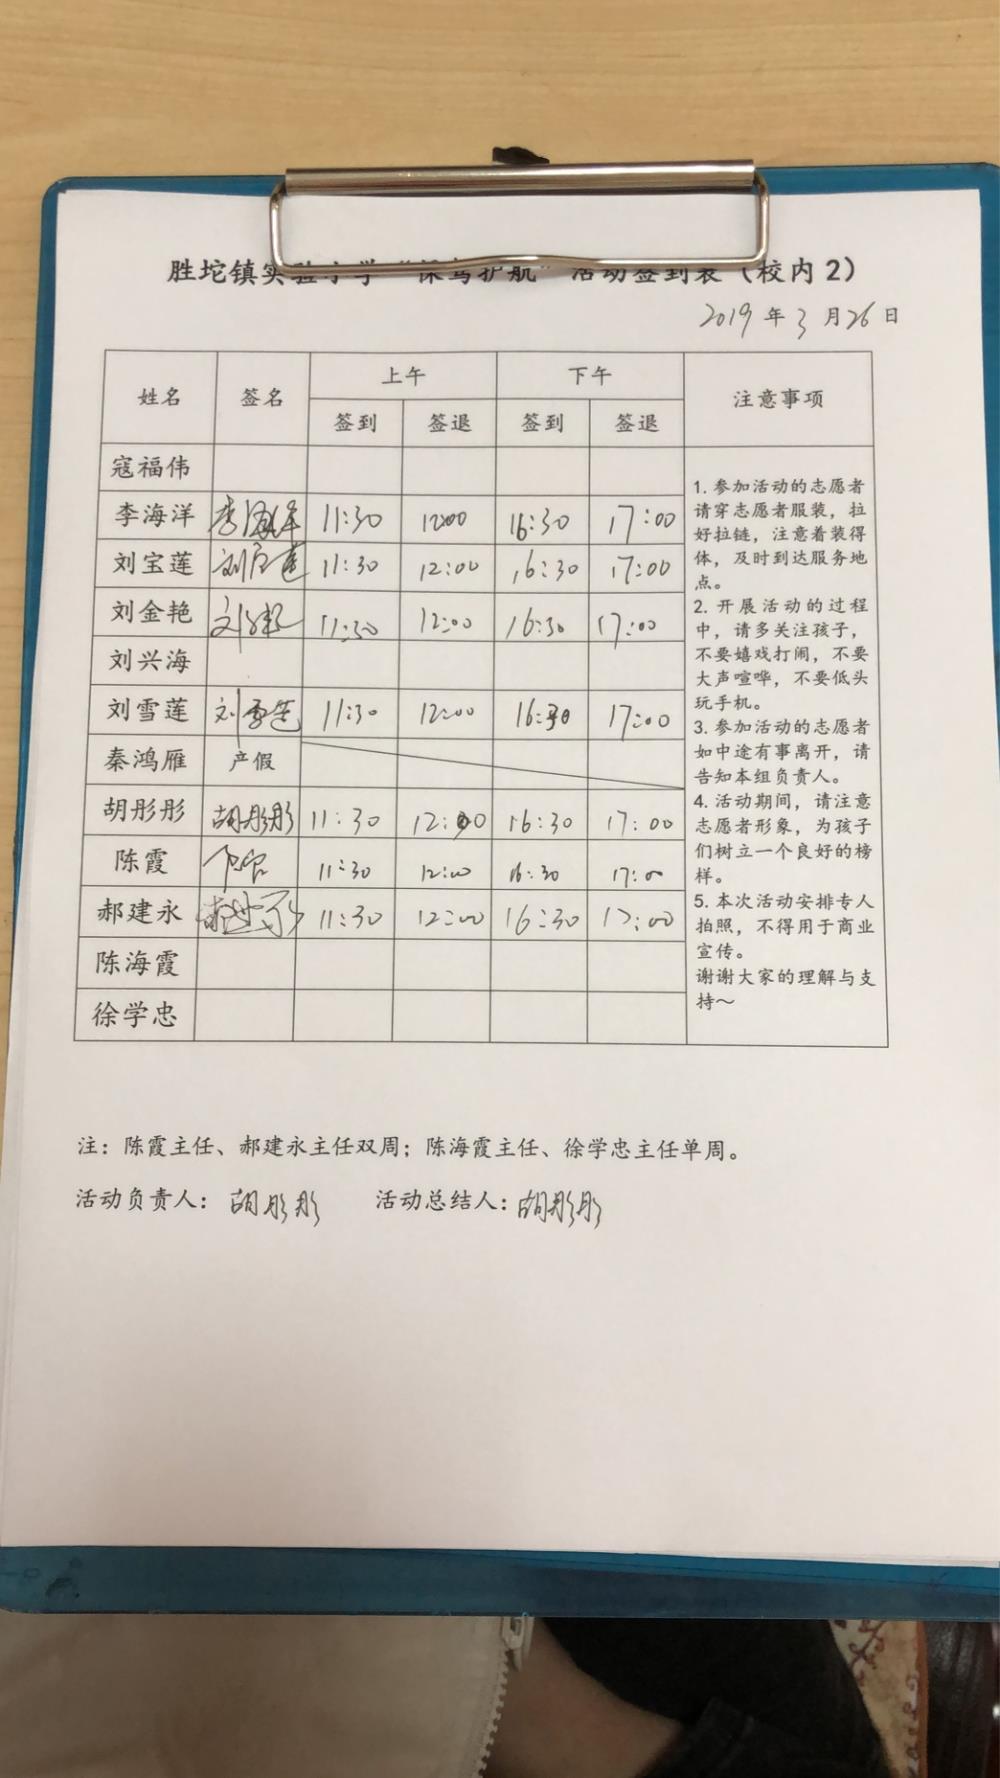 胜坨镇实验小学“保驾护航”活动签到表（校内2）
2019年3月26日
姓名 签名 上午 下午 注意事项
签到 签退 签到 签退
寇福伟
李海洋 李海洋 11:30 12:00 16:30 17:00
刘宝莲 刘宝莲 11:30 12:00 16:30 17:00
刘金艳 刘金艳 11:30 12:00 16:30 17:00
刘兴海
刘雪莲 刘雪莲 11:30 12:00 16:30 17:00
秦鸿雁 产假
胡彤彤 胡彤彤 11:30 12:00 16:30 17:00
陈霞 陈霞 11:30 12:00 16:30 17:00
郝建永 郝建永 11:30 12:00 16:30 17:00
陈海霞
徐学忠
1. 参加活动的志愿者
请穿志愿者服装，拉
好拉链，注意着装得
体，及时到达服务地
点。
2. 开展活动的过程
中，请多关注孩子，
不要嬉戏打闹，不要
大声喧哗，不要低头
玩手机。
3. 参加活动的志愿者
如中途有事离开，请
告知本组负责人。
4. 活动期间，请注意
志愿者形象，为孩子
们树立一个良好的榜
样。
5. 本次活动安排专人
拍照，不得用于商业
宣传。
谢谢大家的理解与支
持～
注：陈霞主任、郝建永主任双周；陈海霞主任、徐学忠主任单周。
活动负责人：胡彤彤 活动总结人：胡彤彤